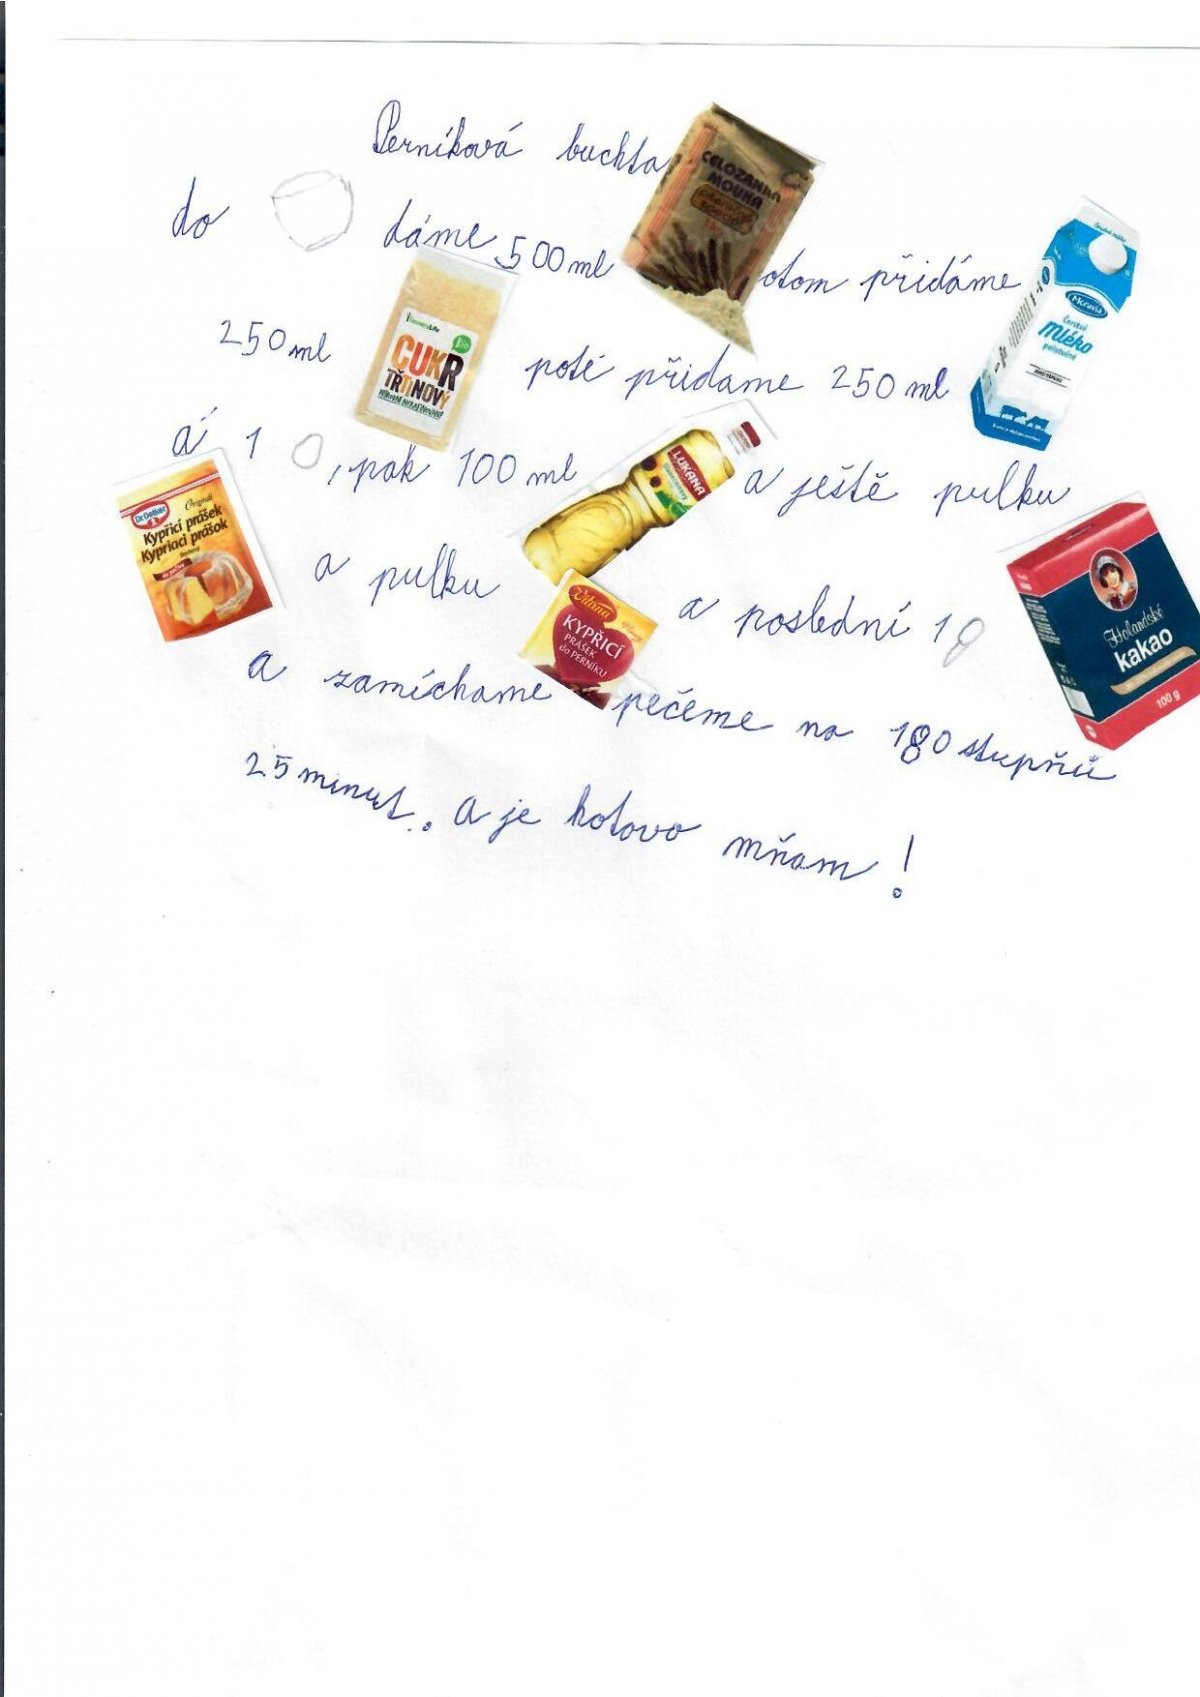 Perníková buchta
do dáme 500 ml CELOZRNNÁ MOUKA otom přidáme
250 ml countryLife BIO CUKR TŘTINOVÝ poté přidame 250 ml Moravia čerstvé mléko
á 1 , pak 100 ml LUKANA a ještě pulku
Dr.Oetker Original Kypřicí prášek Kypriaci prášok a pulku Vitana KYPŘICÍ PRÁŠEK do PERNÍKU a poslední 1 Holandské kakao 100 g
a zamíchame pečéme na 180 stupňů
25 minut. a je hotovo mňam!